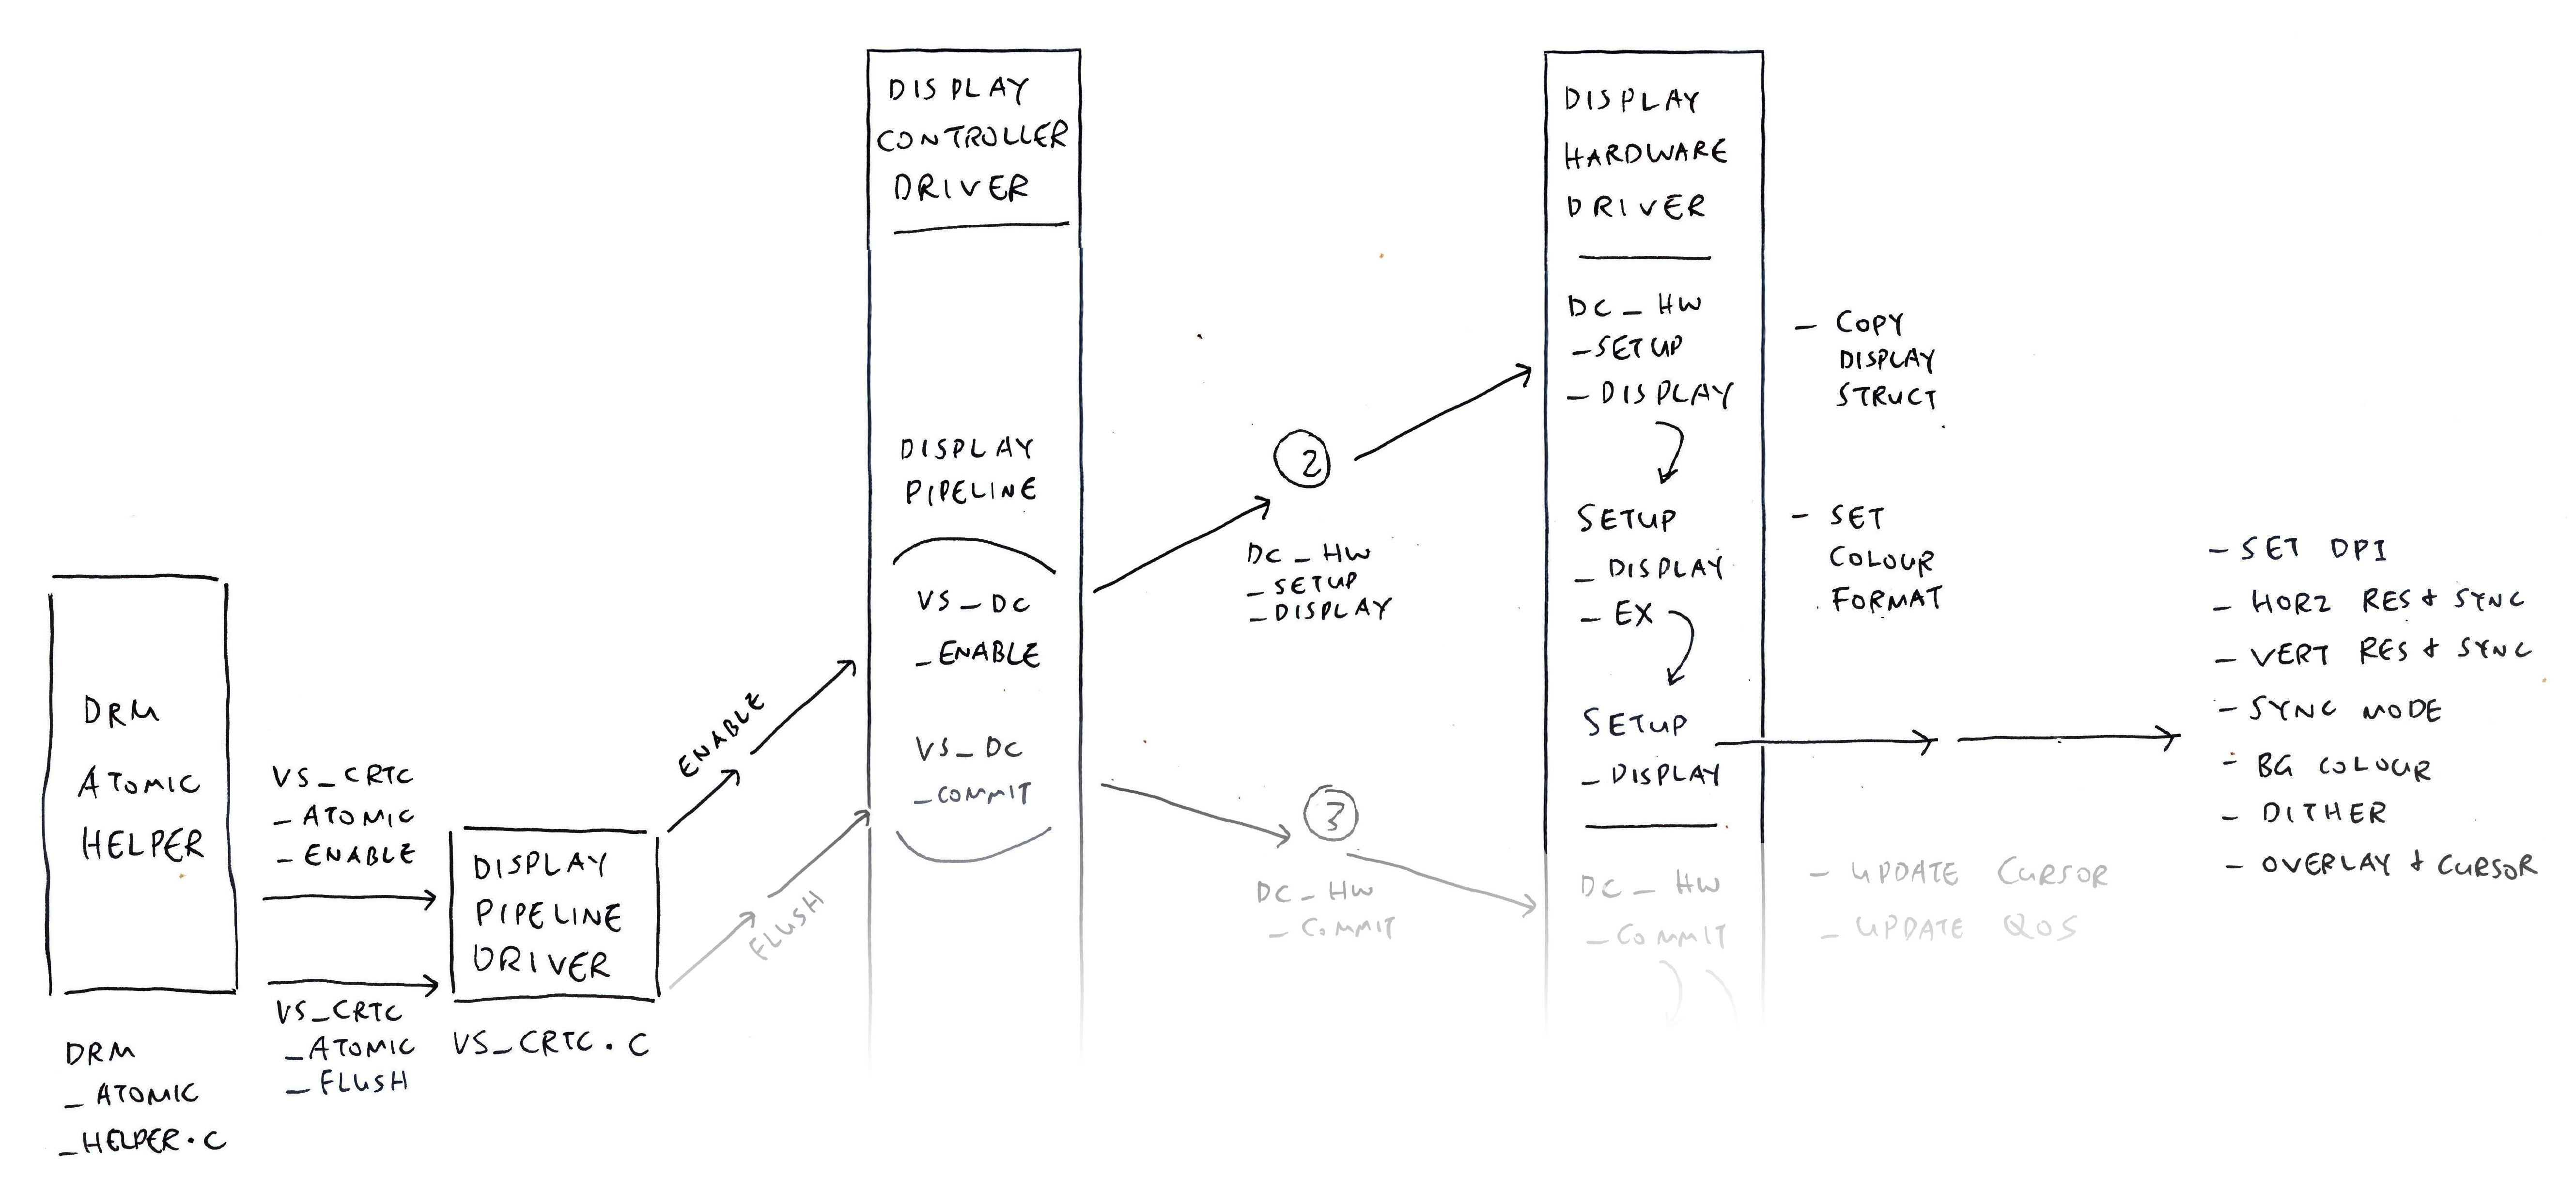 DRM
ATOMIC
HELPER
DRM
_ ATOMIC
_HELPER.C
VS_CRTC
_ ATOMIC
_ ENABLE
VS_CRTC
_ATOMIC
_ FLUSH
DISPLAY
PIPELINE
DRIVER
VS_CRTC.C
ENABLE
FLUSH
DISPLAY
CONTROLLER
DRIVER
DISPLAY
PIPELINE
VS_DC
_ENABLE
VS_DC
_COMMIT
2
DC_HW
_ SETUP
_DISPLAY
3
DC_HW
_ COMMIT
DISPLAY
HARDWARE
DRIVER
DC_HW
_SETUP
_ DISPLAY
SETUP
_ DISPLAY
_ EX
SETUP
_ DISPLAY
DC_HW
_COMMIT
- COPY
DISPLAY
STRUCT
- SET
COLOUR
FORMAT
- UPDATE CURSOR
- UPDATE QOS
- SET DPI
- HORZ RES & SYNC
- VERT RES & SYNC
- SYNC MODE
- BG COLOUR
- DITHER
- OVERLAY & CURSOR